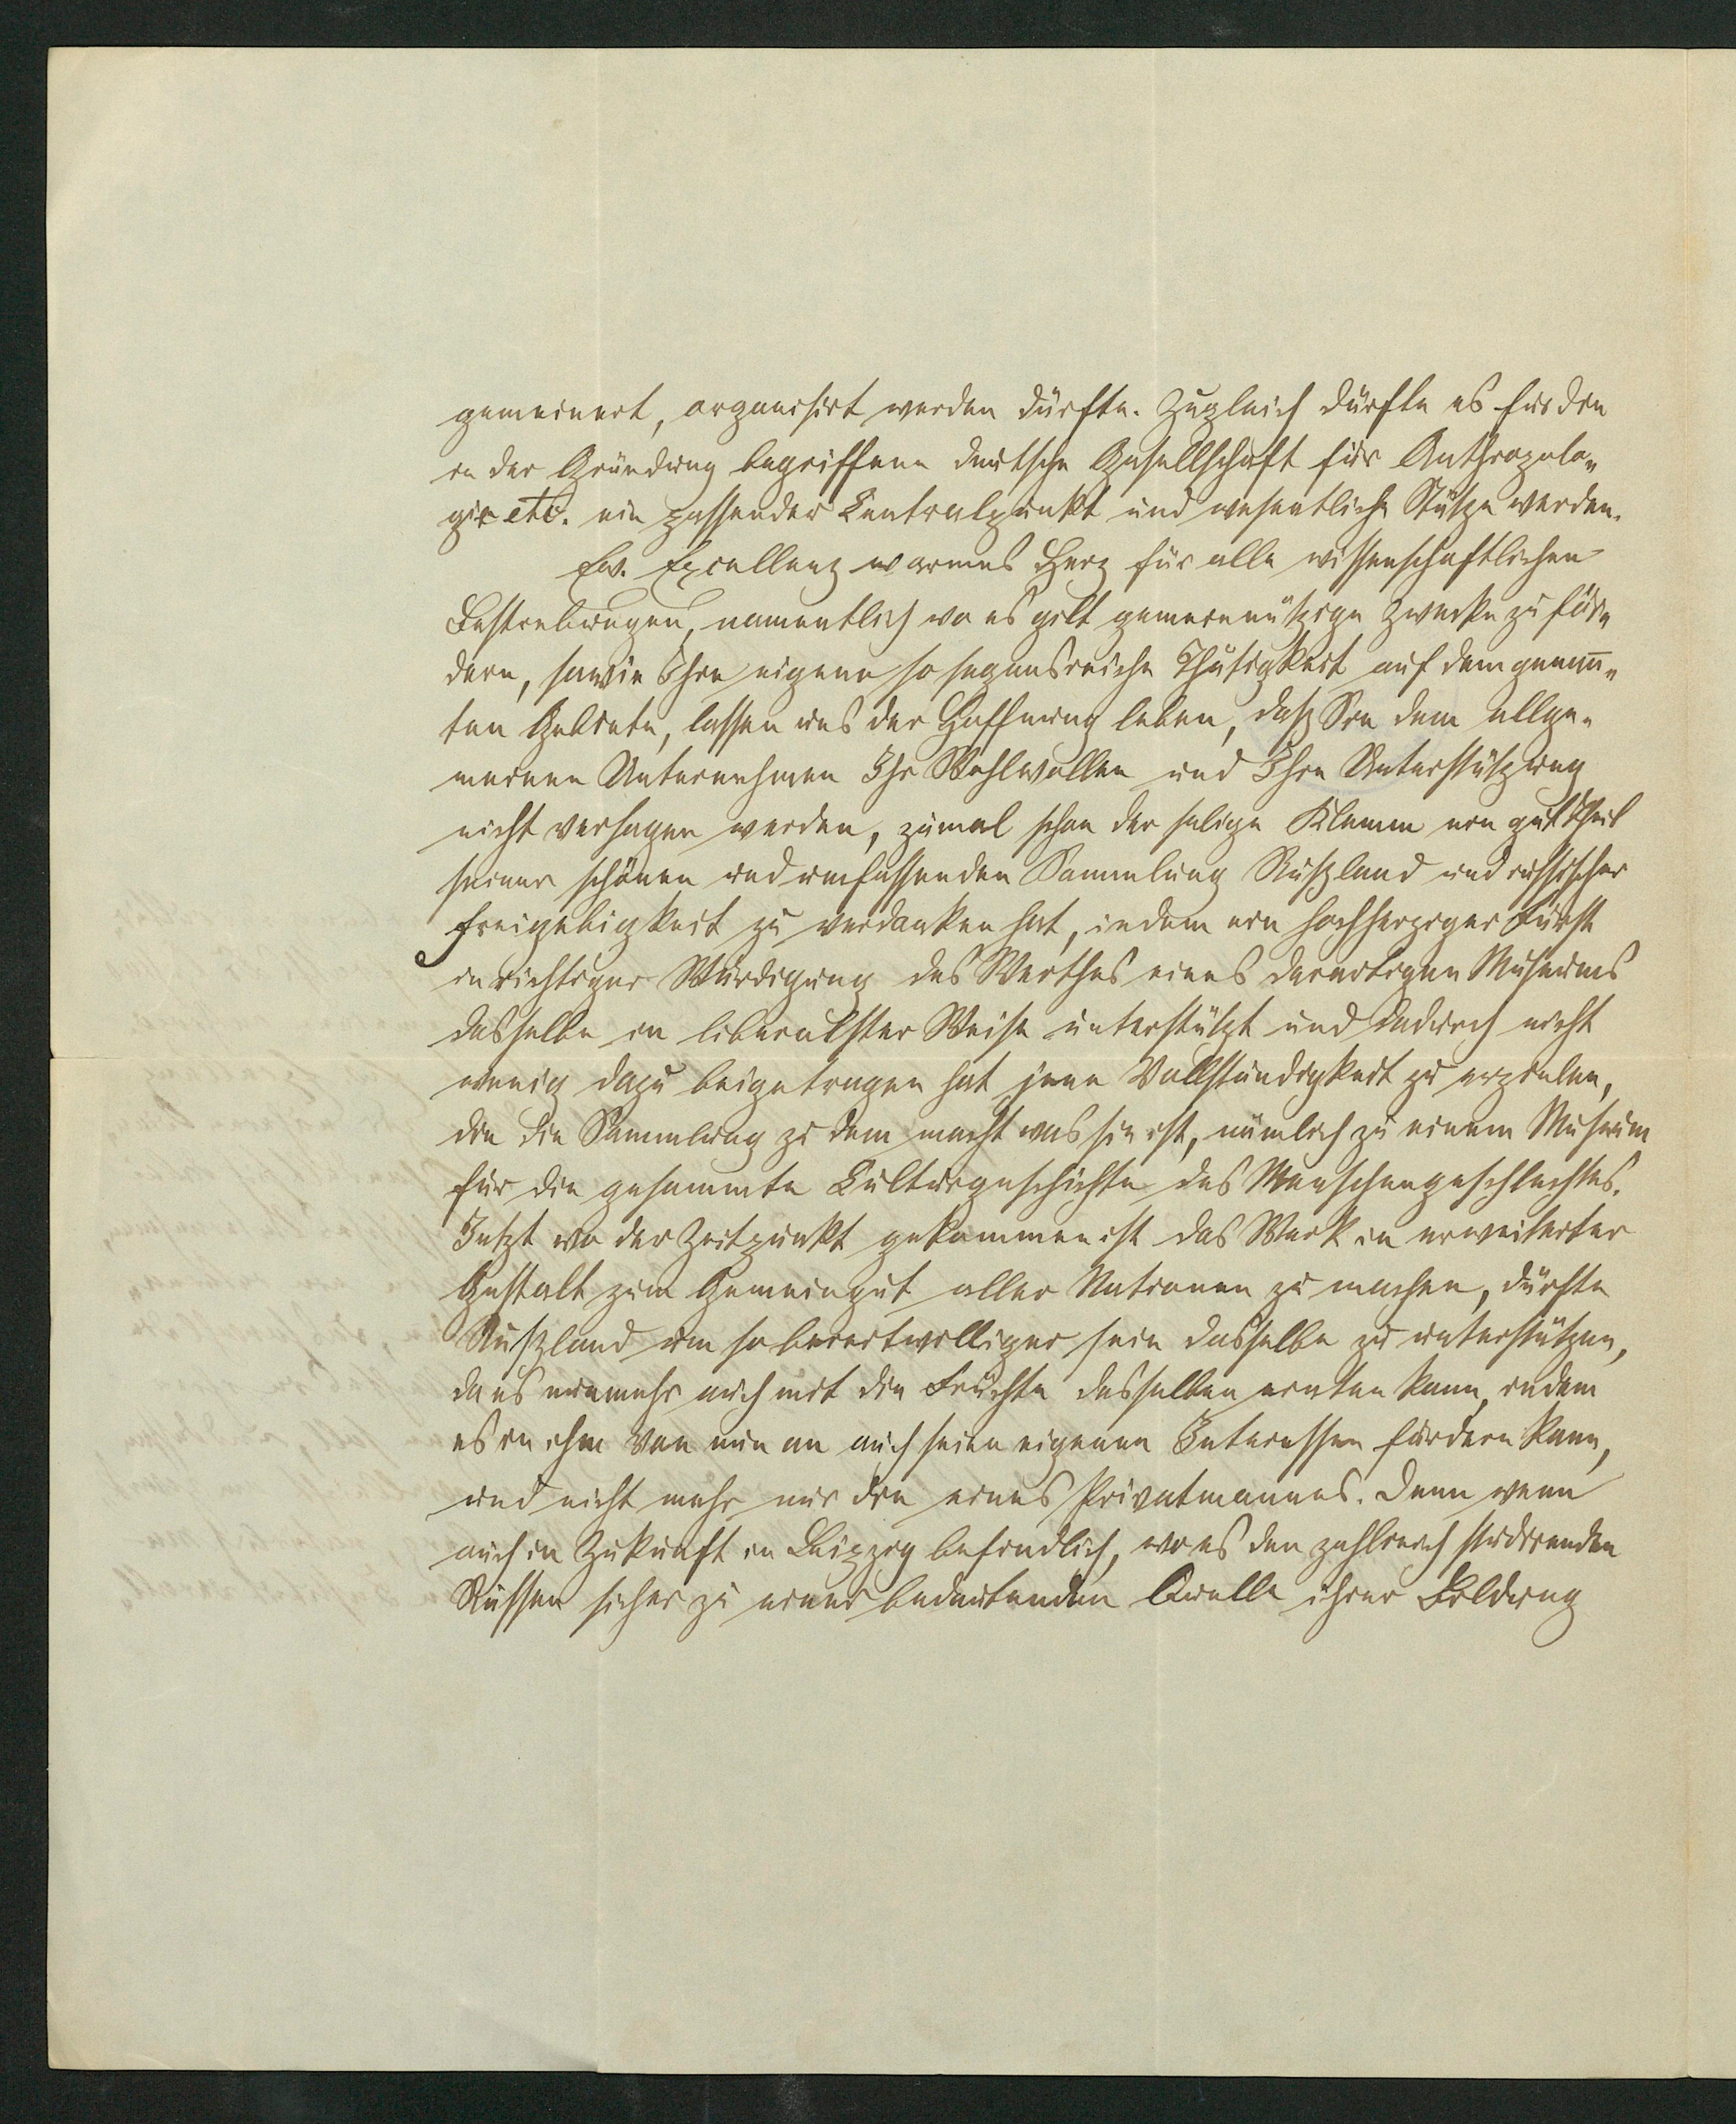 gemeinert, organisirt werden dürfte. Zugleich dürfte es für die
in der Gründung begriffene deutsche Gesellschaft für Anthropolo-
gie etc. ein passender Centralpunkt und wesentliche Stütze werden.
Ew. Excellenz warmes Herz für alle wissenschaftlichen
Bestrebungen, namentlich wo es gilt gemeinnützige Zwecke zu för-
dern, sowie Ihre eigene so segensreiche Thätigkeit auf dem genan̅-
ten Gebiete, lassen uns der Hoffnung leben, daß Sie dem allge-
meinen Unternehmen Ihr Wohlwollen und Ihre Unterstützung
nicht versagen werden, zumal schon der selige Klemm ein gut Theil
seiner schönen und umfassenden Sammlung Rußland und russischer
Freigebigkeit zu verdanken hat, indem ein hochherziger Fürst
in richtiger Würdigung des Werthes eines derartigen Museums
dasselbe in liberalster Weise unterstützt und dadurch nicht
wenig dazu beigetragen hat jene Vollständigkeit zu erzielen,
die die Sammlung zu dem macht was sie ist, nämlich zu einem Museum
für die gesammte Culturgeschichte des Menschengeschlechtes.
Jetzt wo der Zeitpunkt gekommen ist das Werk in erweiterter
Gestalt zum Gemeingut aller Nationen zu machen, dürfte
Rußland um so bereitwilliger sein dasselbe zu unterstützen,
da es nunmehr auch mit die Früchte desselben ernten kann, indem
es in ihm von nun an auch seine eigenen Interessen fördern kann,
und nicht mehr nur die eines Privatmannes. Denn wenn
auch in Zukunft in Leipzig befindlich, wo es den zahlreich studirenden
Russen sicher zu einer bedeutenden Quelle ihrer Bildung